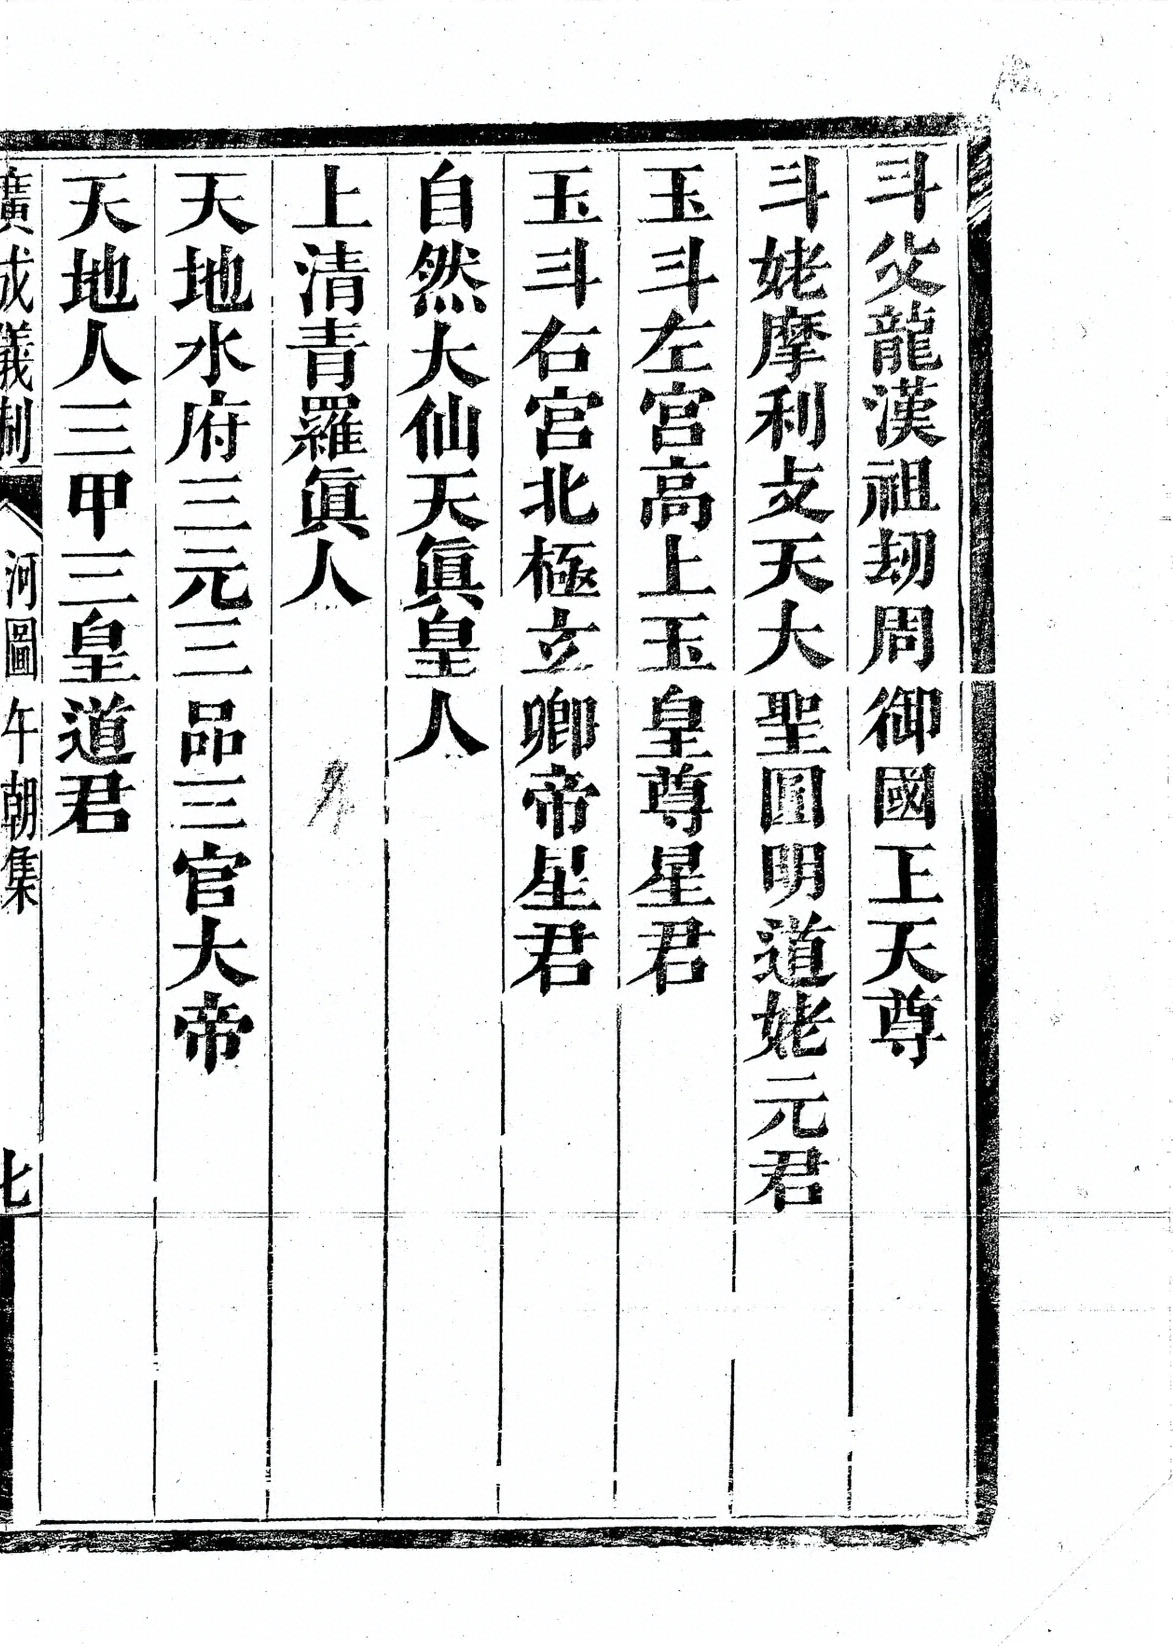 斗父龍漢祖劫周御國王天尊
斗姥摩利攴天大聖圓明道姥元君
玉斗左宮高上玉皇尊星君
玉斗右宮北極玄卿帝星君
自然大仙天眞皇人
上清青羅眞人
天地水府三元三品三官大帝
天地人三甲三皇道君
廣成儀制 河圖午朝集 七